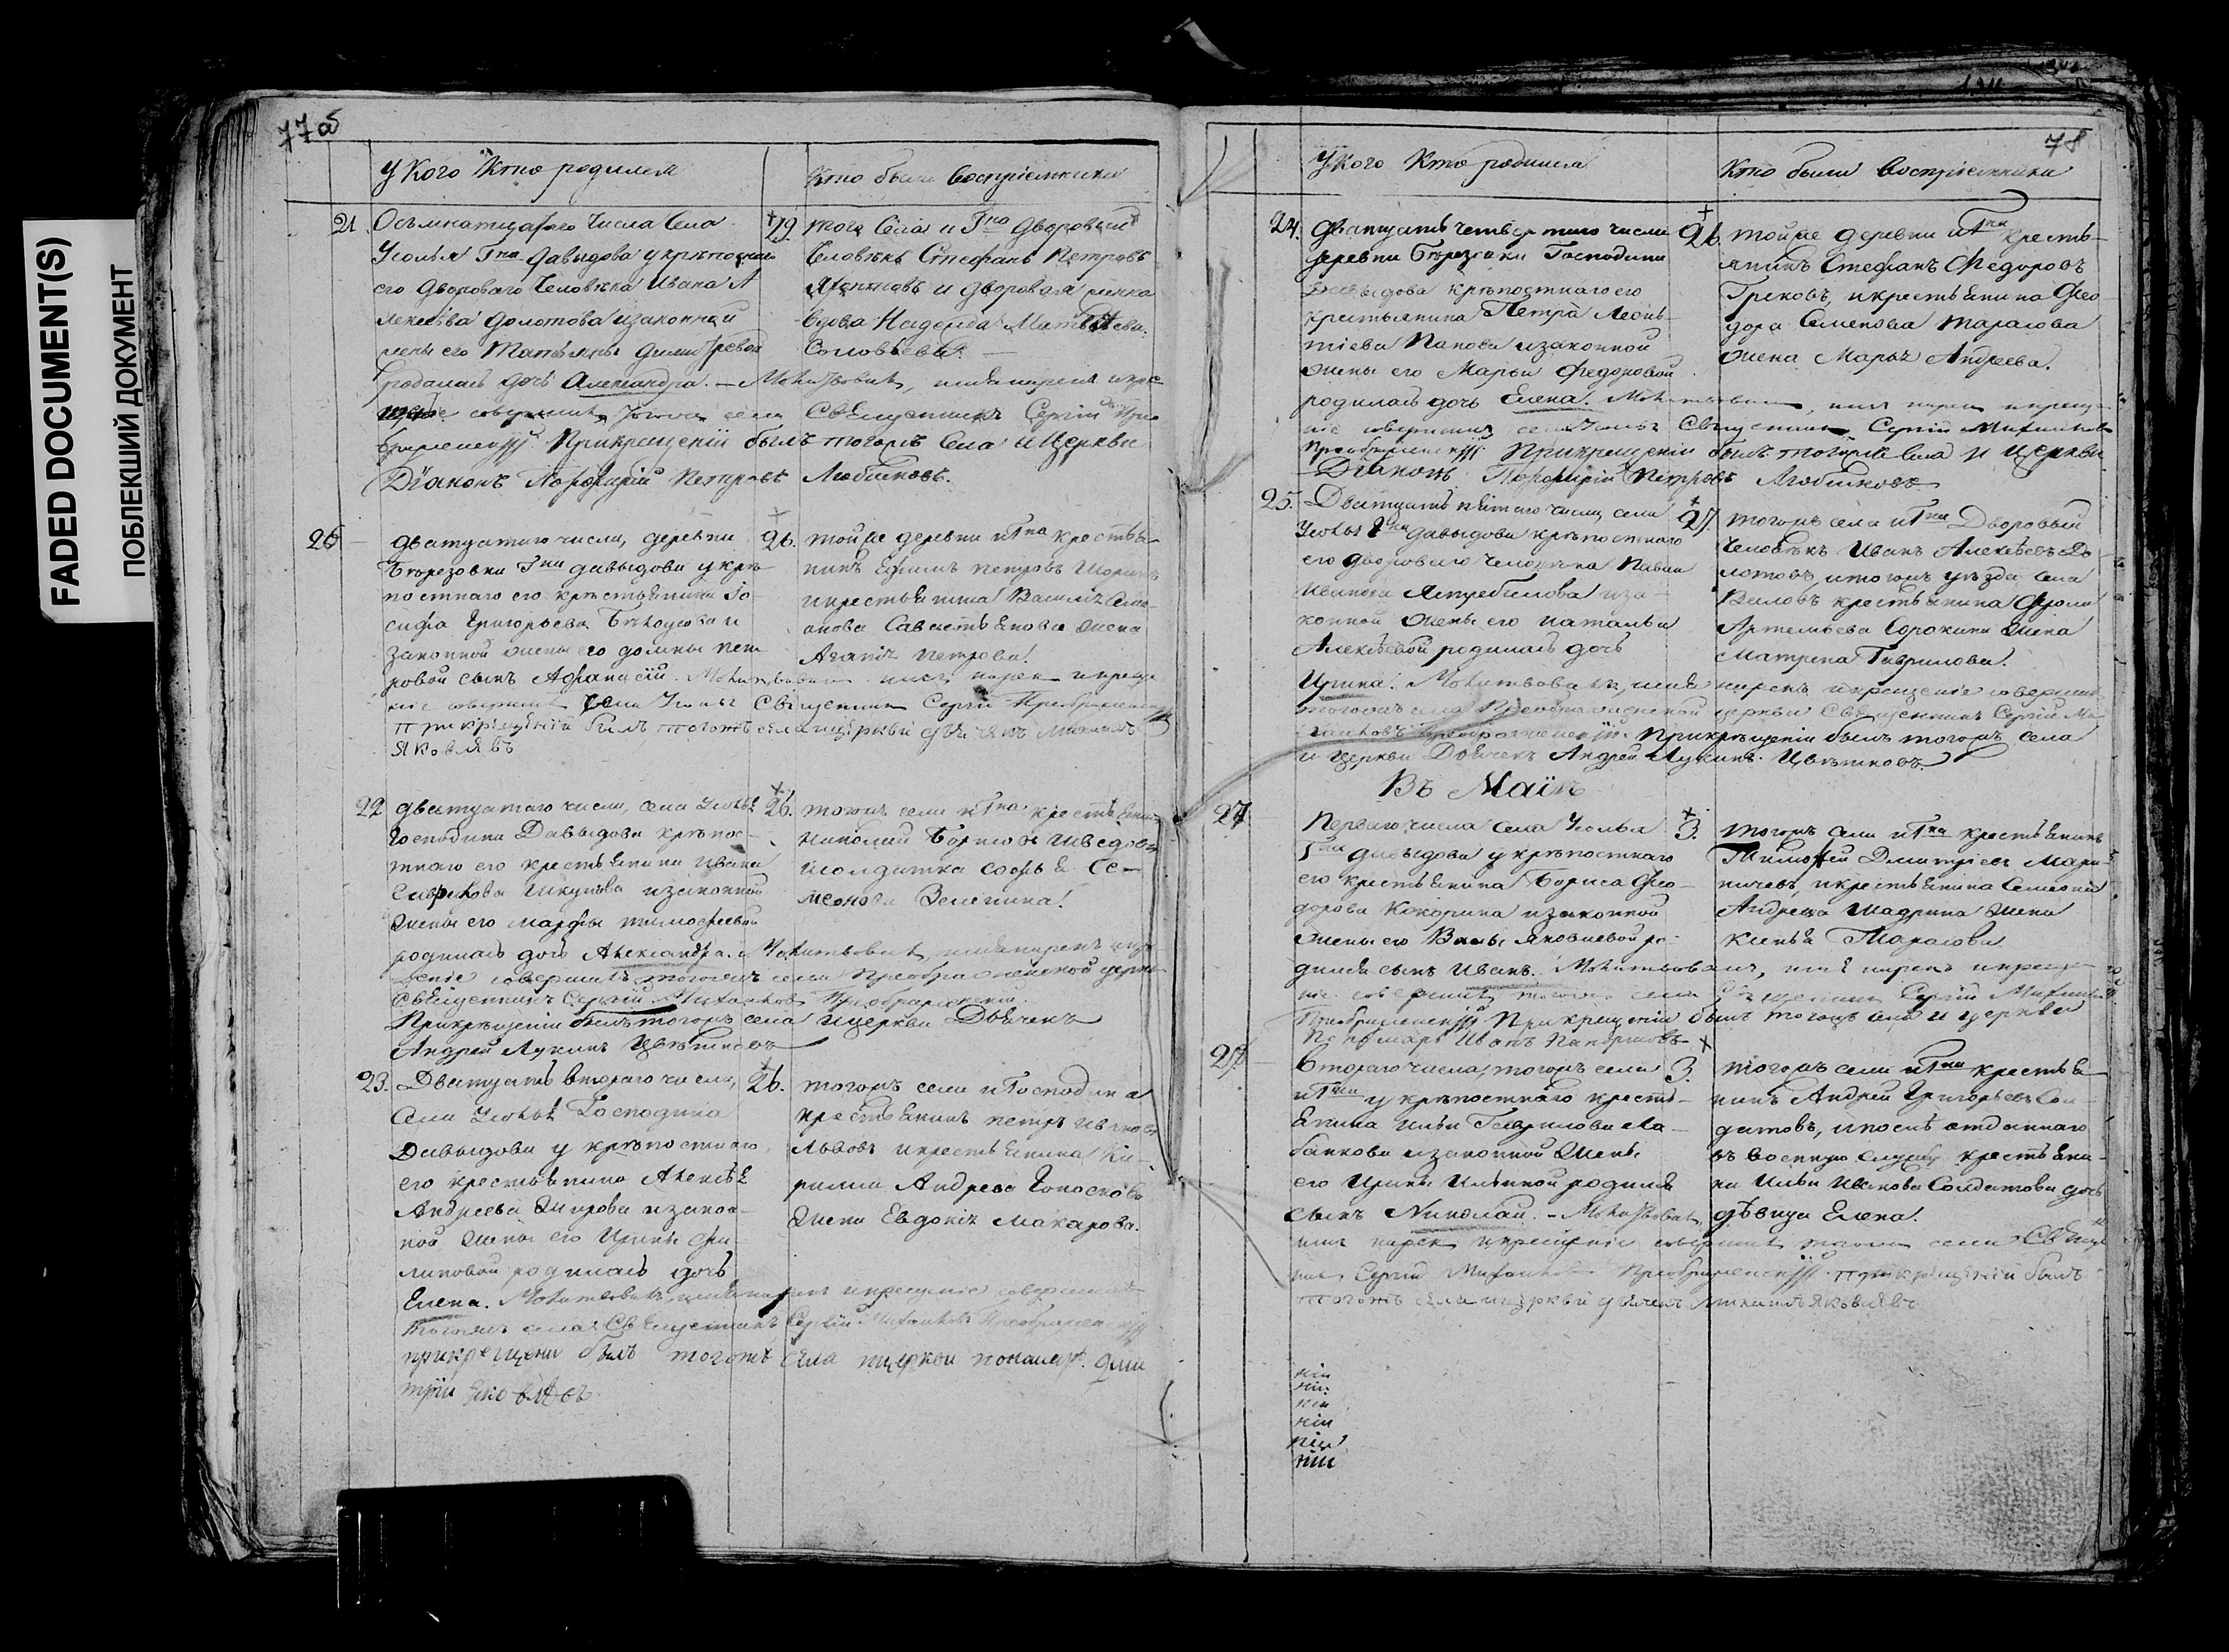 FADED DOCUMENT(S)
ПОБЛЕКШИЙ ДОКУМЕНТ
77об
У Кого Кто родился
Кто были восприемники
21 Осьмнатцатого Числа Села
Усолья Гна Давыдова укрѣпостнаго
его дворового Человѣка Ивана А
лексѣева Долотова изаконной
жены его Татьяны Димитревой
родилась дочь Александра. — Молитвовалъ, имя нарекъ и кре
совершилъ тогожъ села Священникъ Сергій
Прикрещеніи былъ тогожъ Села и Церкви
Діаконъ Порфирій Петровъ Любимовъ.
19. того Села и Гна Дворовый
Человѣкъ Стефанъ Петровъ
и дворовая женка
вдова Надежда Матвѣева
Соловьева. —
26 дватцатаго числа, деревни
Березовки Гна Давыдова укрѣ-
постнаго его крестьянина Іо-
сифа Григорьева Бѣлоусова и
законной жены его Домны пет
ровой сынъ Афанасій. Молитвовалъ имя нарекъ и креще
ніе совершилъ села Усолья Священникъ Сергій Преображенскій
прикрещеніи былъ тогожъ села ицеркви дьячекъ михаилъ
Яковлевъ
26. тойже деревни иГна крестья-
нинъ Ефимъ петровъ
икрестьянина Василія Семе-
нова Савастьянова жена
Агапія петрова.
22 дватцатаго числа, села Усолья
Господина Давыдова крѣпос-
тнаго его крестьянина Ивана
изаконной
жены его марфы тимофѣевой
родилась дочь Александра. Молитвовалъ, имя нарекъ икре
щеніе совершилъ тогожъ села Преображенской церкви
Священникъ Сергій Михайловъ Преображенскій.
Прикрещеніи былъ тогожъ села ицеркви Дьячекъ
Андрей Лукинъ Цвѣтковъ
26. тогожъ села иГна крестьянинъ
Николай Борисовъ Шведовъ
исолдатка софья Се-
менова Зеленина.
23. Дватцать втораго числа,
Села Усолья Господина
Давыдова у крѣпостнаго
его крестьянина Алексѣя
Андреева Жирова изакон-
ной жены его Ирины фи-
липовой родилась дочь
Елена. Молитвовалъ, имя нарекъ икрещеніе совершилъ
тогожъ села Священникъ Сергій Михайловъ Преображенскій
прикрещени былъ тогожъ села ицеркви пономарь дми
трій яковлевъ
26. тогожъ села иГосподина
крестьянинъ петръ ивановъ
Львовъ икрестьянина Ки-
рилла Андреева
жена Евдокія макарова.
78
У Кого Кто родился
Кто были Восприемники
24. Дватцать четвертаго числа
деревни Березовки Господина
Давыдова крѣпостнаго его
крестьянина Петра Леонь-
тіева Папова изаконной
жены его Марьи Федоровой
родилась дочь Елена. Молитвовалъ, имя нарекъ икреще-
ніе совершилъ села Усолья Священникъ Сергій Михайловъ
Преображенскій Прикрещеніи былъ тогожъ Села и Церкви
Діаконъ Порфирій Петровъ Любимовъ
26. тойже деревни иГна кресть-
янинъ Стефанъ Федоровъ
Грековъ, икрестьянина Фео-
дора Семенова тарасова
жена Марья Андреева.
25. Дватцать пятаго числа, села
Усолья Гна Давыдова крѣпостнаго
его дворового человѣка Павла
Иванова Ястребилова иза-
конной жены его натальи
Алексѣевой родилась дочь
Ирина. Молитвовалъ, имя нарекъ икрещеніе совершилъ
тогожъ села Преображенской церкви Священникъ Сергій Ми-
хайловъ Преображенскій. Прикрещеніи былъ тогожъ села
и церкви Дьячекъ Андрей Лукинъ Цвѣтковъ
27. тогожъ села иГна Дворовый
Человѣкъ Иванъ Алексѣевъ До-
лотовъ, итогожъ уѣзда, села
Валовъ крестьянина Фрола
Артемьева Сорокина жена
Матрена Гаврилова.
Въ Маіѣ
27 Перваго числа села Усолья
Гна Давыдова укрѣпостнаго
его крестьянина Бориса Фео-
дорова Кокорина изаконной
жены его Васы Яковлевой ро-
дился сынъ Иванъ. Молитвовалъ, имя нарекъ икреще-
ніе совершилъ тогожъ села Священникъ Сергій Михайловъ
Преображенскій Прикрещеніи былъ тогожъ села и церкви
Пономарь Иванъ
3. тогожъ села иГна крестьянинъ
Тимофей Дмитріевъ Мари-
ничевъ, икрестьянина Семеона
Андреева Шадрина жена
Тарасова
27 Втораго числа, тогожъ села
иГна у крѣпостнаго кресть-
янина Ильи Гаврилова Ла-
банкова изаконной Жены
его Ирины Ильиной родился
сынъ Николай. — Молитвовалъ,
имя нарекъ икрещеніе совершилъ тогожъ села Священ-
никъ Сергій Михайловъ Преображенскій прикрещеніи былъ
тогожъ села ицеркви дьячекъ михаилъ Яковлевъ
3. тогожъ села иГна крестья-
нинъ Андрей Григорьевъ Сол-
датовъ, ипослѣ отданнаго
въ военную службу крестьяни-
на Ильи Иванова Солдатова дочь
дѣвица Елена.
ніи
ніи
ніи
ніи
ніи
ніи